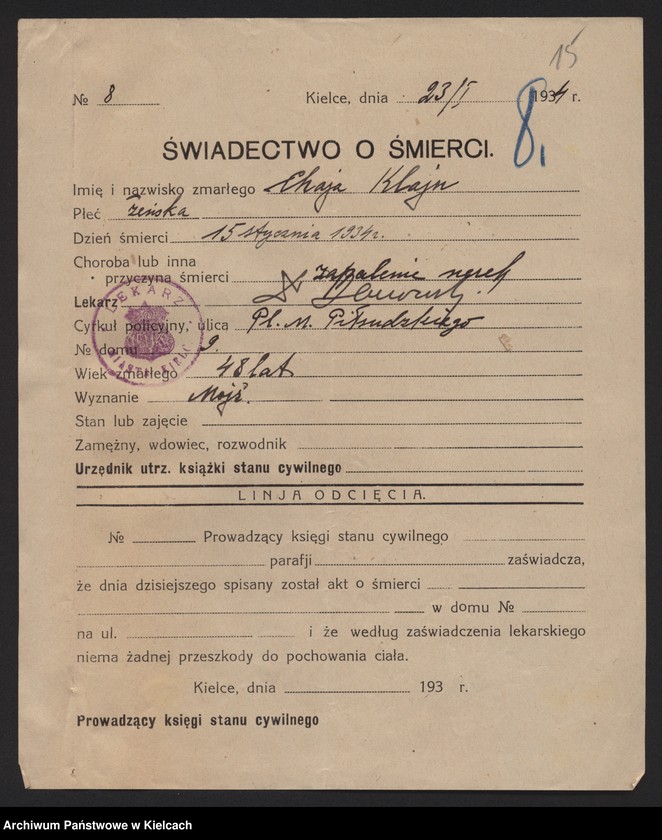 15
№ 8 Kielce, dnia 23/I 1934 r.
8.
ŚWIADECTWO O ŚMIERCI.
Imię i nazwisko zmarłego Chaja Klajn
Płeć żeńska
Dzień śmierci 15 stycznia 1934 r.
Choroba lub inna
przyczyna śmierci zapalenie nerek
Lekarz
LEKARZ
MIASTA KIELC
Cyrkuł policyjny, ulica Pl. M. Piłsudzkiego
№ domu 9.
Wiek zmarłego 48 lat
Wyznanie Mojż.
Stan lub zajęcie
Zamężny, wdowiec, rozwodnik
Urzędnik utrz. książki stanu cywilnego
LINJA ODCIĘCIA.
№ Prowadzący księgi stanu cywilnego
parafji zaświadcza,
że dnia dzisiejszego spisany został akt o śmierci
w domu №
na ul. i że według zaświadczenia lekarskiego
niema żadnej przeszkody do pochowania ciała.
Kielce, dnia 193 r.
Prowadzący księgi stanu cywilnego
Archiwum Państwowe w Kielcach